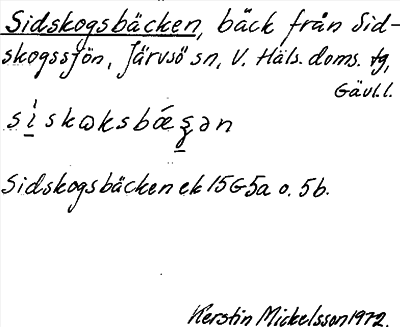 Sidskogsbäcken, bäck från Sid-
skogssjön, Järvsö sn, V. Häls. doms. tg,
Gävl.l.
sískωksbǽʂən
Sidskogsbäcken ek 15G5a o. 5b.
Kerstin Mickelsson 1972.